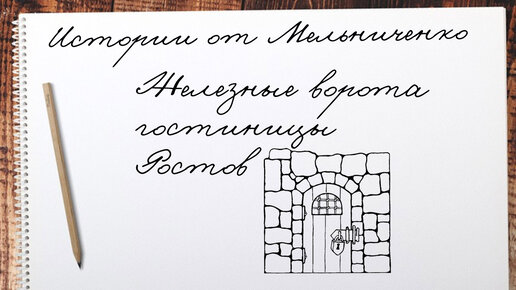 Истории от Мельниченко
Железные ворота
гостиницы
Ростов